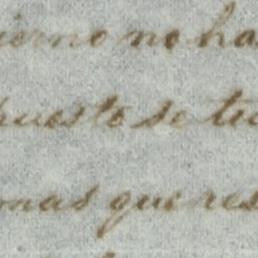 ierno no ha
puesto se tu
omas que res